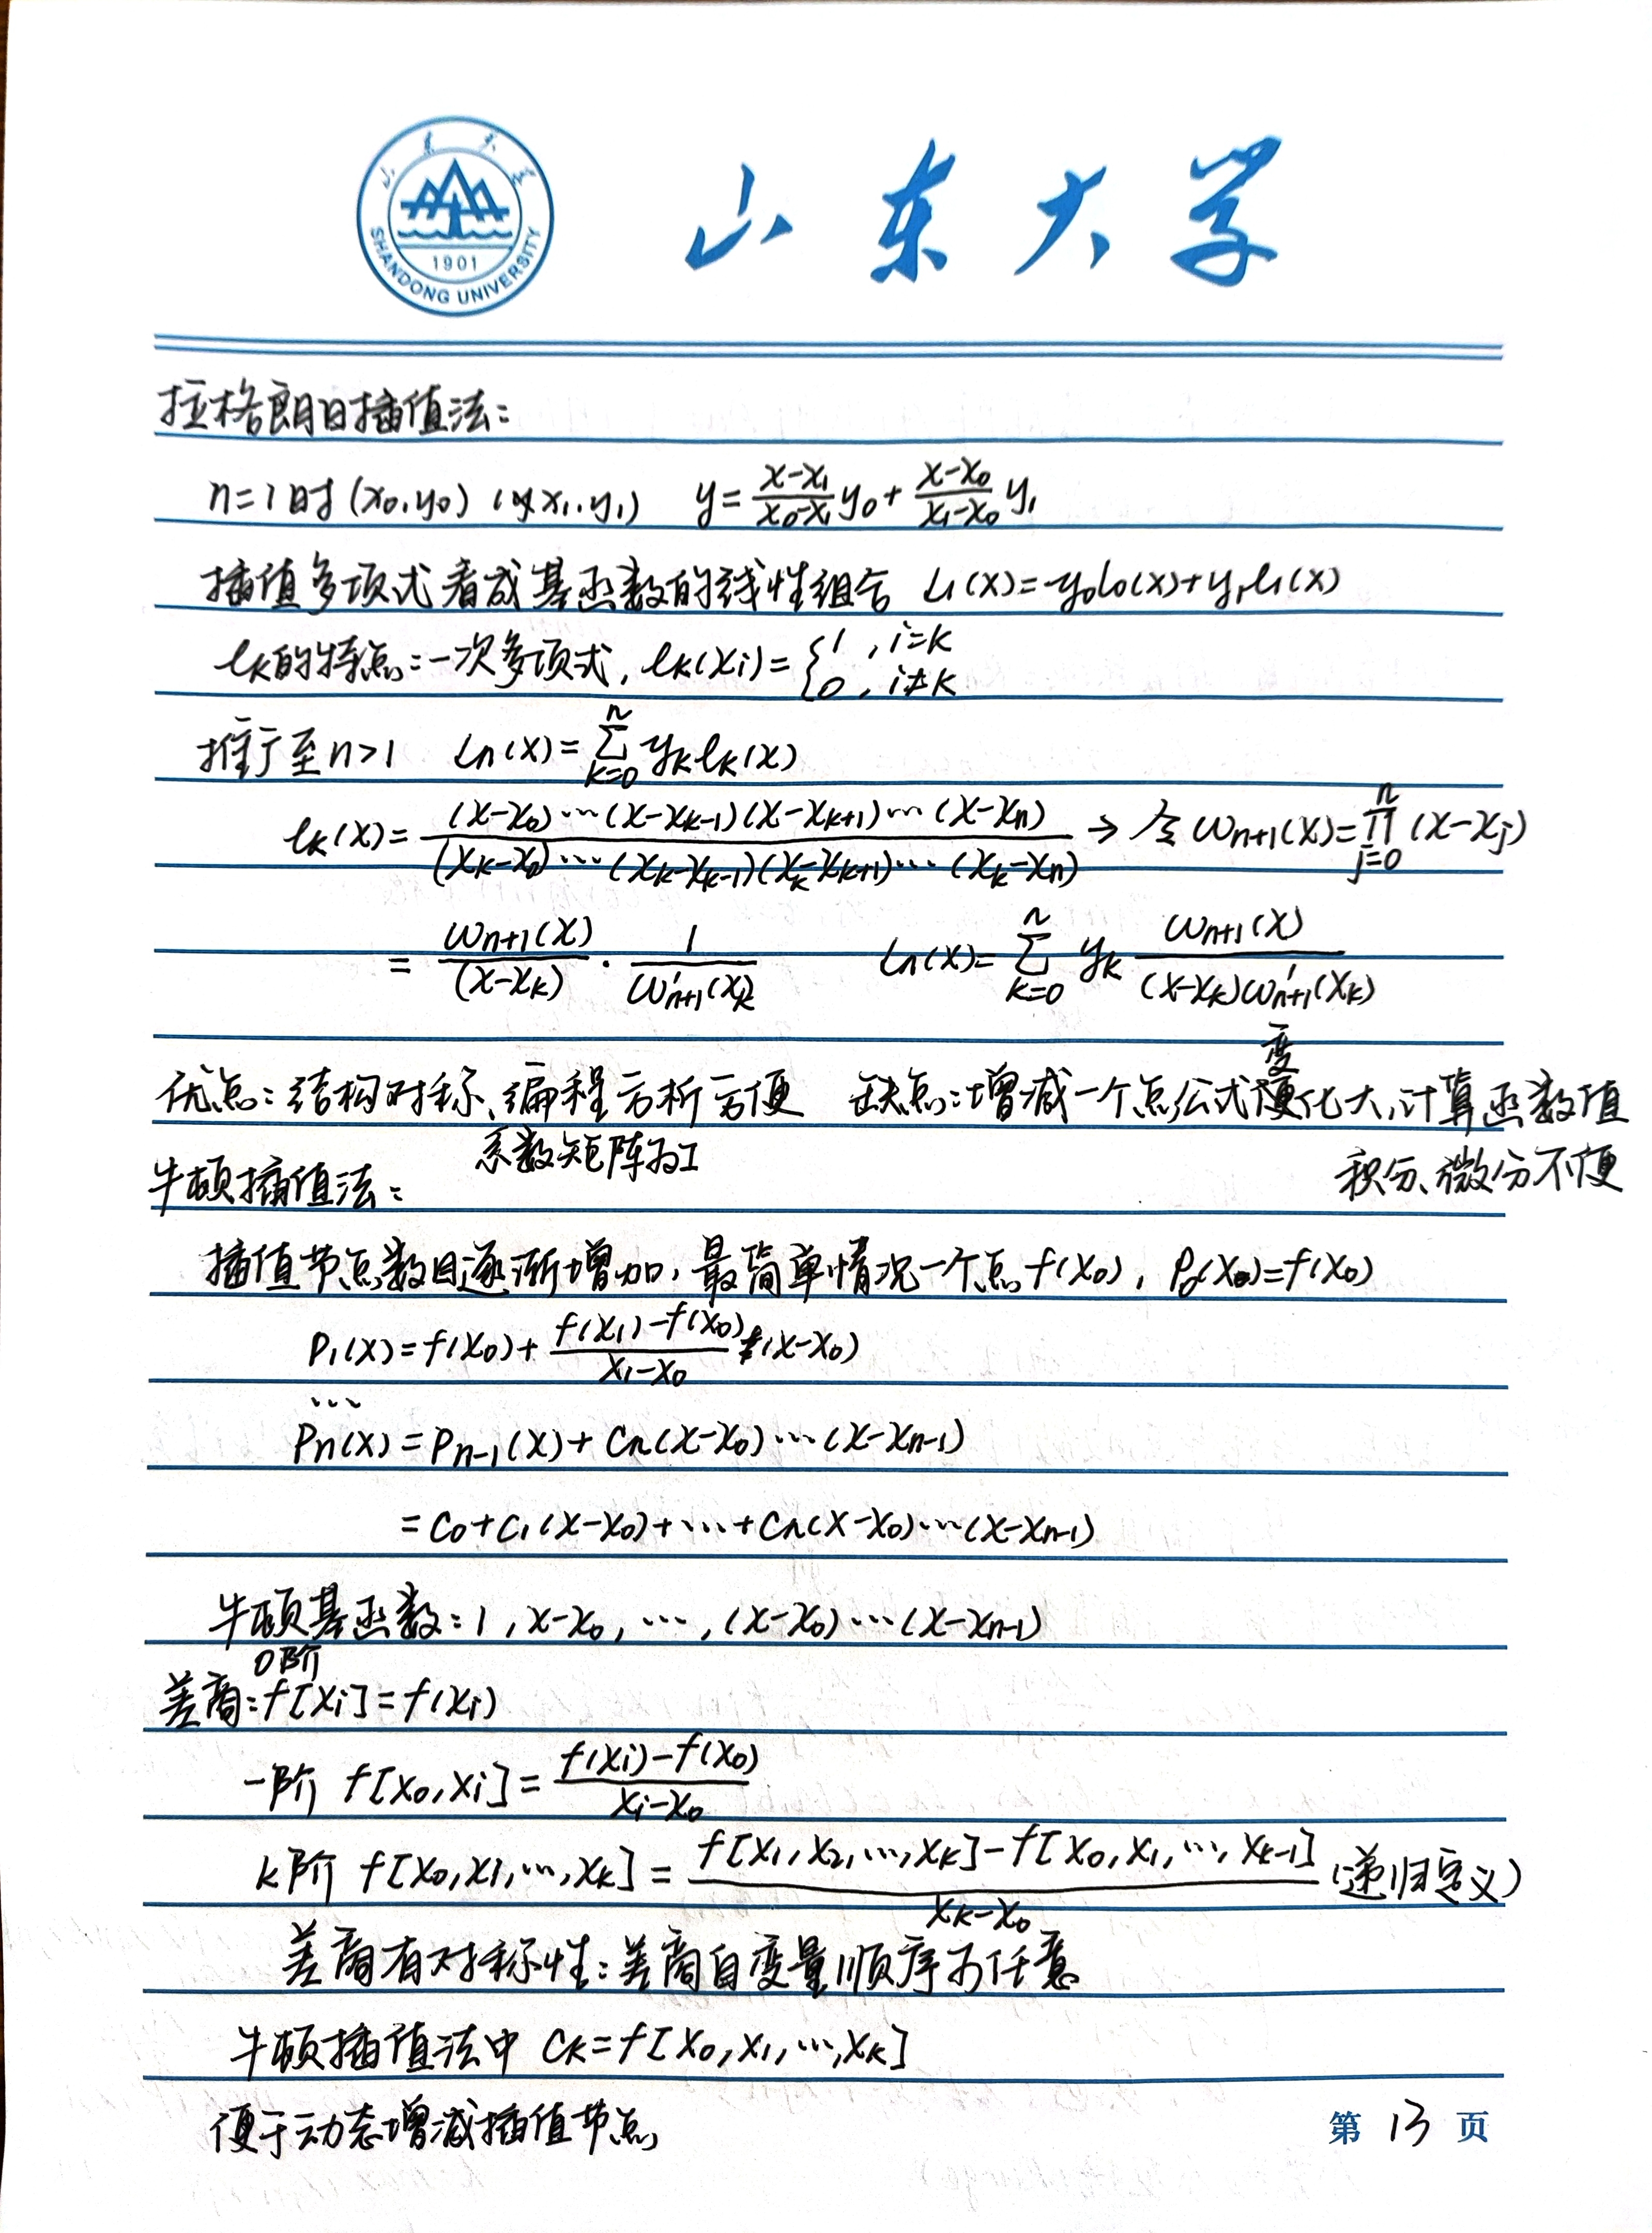 山东大学
山东大学
SHANDONG UNIVERSITY
1901
拉格朗日插值法:
n=1时 (x₀,y₀) (x₁,y₁) y=\frac{x-x₁}{x₀-x₁}y₀+\frac{x-x₀}{x₁-x₀}y₁
插值多项式看成基函数的线性组合 L₁(x)=y₀l₀(x)+y₁l₁(x)
lₖ的特点:一次多项式, lₖ(xᵢ)={1, i=k
0, i≠k
推广至n>1 Lₙ(x)=\sum_{k=0}^{n} yₖlₖ(x)
lₖ(x)=\frac{(x-x₀)…(x-x_{k-1})(x-x_{k+1})…(x-xₙ)}{(xₖ-x₀)…(xₖ-x_{k-1})(xₖ-x_{k+1})…(xₖ-xₙ)} → 令 ω_{n+1}(x)=\prod_{j=0}^{n}(x-xⱼ)
=\frac{ω_{n+1}(x)}{(x-xₖ)}·\frac{1}{ω'_{n+1}(xₖ)} Lₙ(x)=\sum_{k=0}^{n} yₖ\frac{ω_{n+1}(x)}{(x-xₖ)ω'_{n+1}(xₖ)}
优点:结构对称、编程方析方便 缺点:增减一个点公式变化大,计算函数值
系数矩阵为I
积分、微分不便
牛顿插值法:
插值节点数目逐渐增加,最简单情况一个点f(x₀), P₀(x₀)=f(x₀)
P₁(x)=f(x₀)+\frac{f(x₁)-f(x₀)}{x₁-x₀}(x-x₀)
…
Pₙ(x)=P_{n-1}(x)+cₙ(x-x₀)…(x-x_{n-1})
=c₀+c₁(x-x₀)+…+cₙ(x-x₀)…(x-x_{n-1})
牛顿基函数:1, x-x₀, …, (x-x₀)…(x-x_{n-1})
0阶
差商:f[xᵢ]=f(xᵢ)
一阶 f[x₀,xᵢ]=\frac{f(xᵢ)-f(x₀)}{xᵢ-x₀}
k阶 f[x₀,x₁,…,xₖ]=\frac{f[x₁,x₂,…,xₖ]-f[x₀,x₁,…,x_{k-1}]}{xₖ-x₀}(递归定义)
差商有对称性:差商自变量顺序可任意
牛顿插值法中 cₖ=f[x₀,x₁,…,xₖ]
便于动态增减插值节点
第 13 页